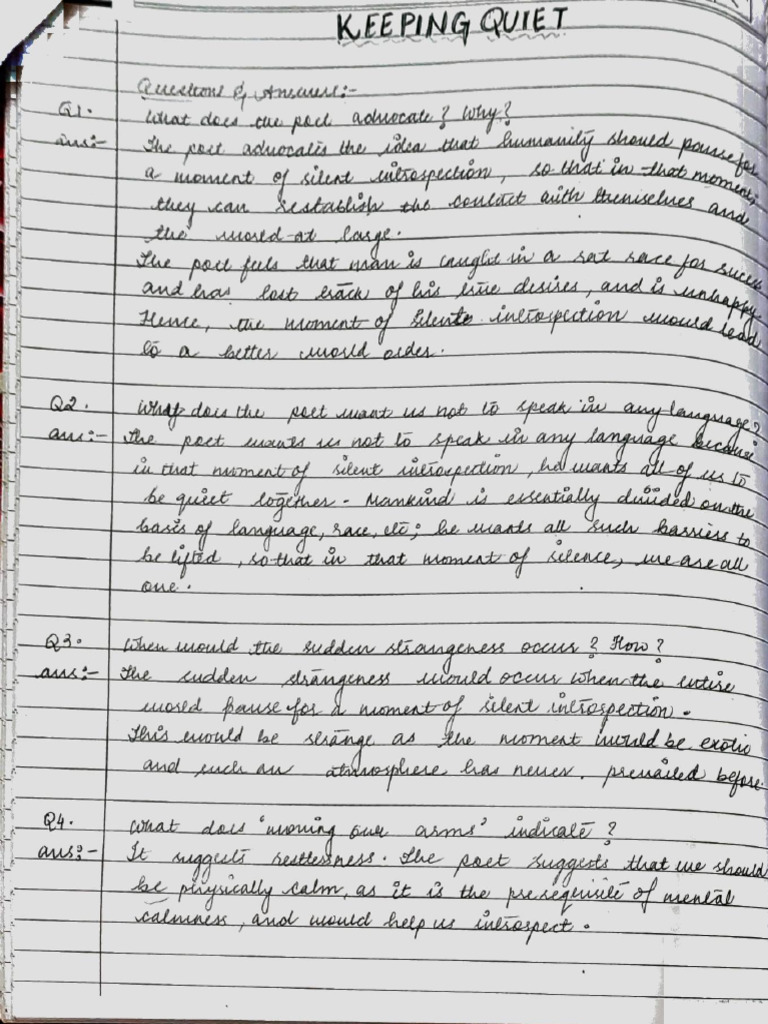 KEEPING QUIET
Questions & Answers:-
Q1. What does the poet advocate? Why?
ans:- The poet advocates the idea that humanity should pause for
a moment of silent introspection, so that in that moment,
they can restablish the contact with themselves and
the world at large.
The poet feels that man is caught in a rat race for
and has lost track of his true desires, and is unhappy.
Hence, the moment of silent introspection would lead
to a better world order.
Q2. Why does the poet want us not to speak in any language?
ans:- The poet wants us not to speak in any language because
in that moment of silent introspection, he wants all of us to
be quiet together. Mankind is essentially divided on the
basis of language, race, etc; he wants all such barriers to
be lifted, so that in that moment of silence, we are all
one.
Q3. When would the sudden strangeness occur? How?
ans:- The sudden strangeness would occur when the entire
world pause for a moment of silent introspection.
This would be strange as the moment would be exotic
and such an atmosphere has never. prevailed before.
Q4. What does 'moving our arms' indicate?
ans:- It suggests restlessness. The poet suggests that we should
be physically calm, as it is the prerequisite of mental
calmness, and would help us introspect.